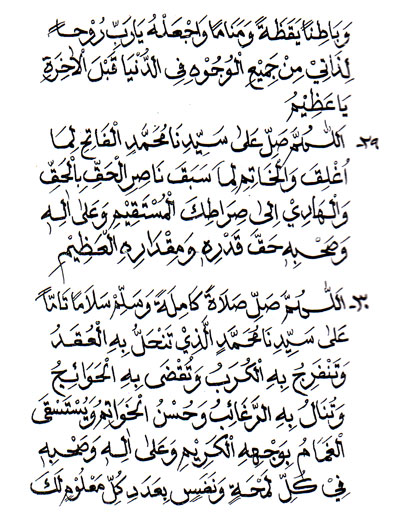 وَبَاطِنًا يَقَظَةً وَمَنَامًا وَاجْعَلْهُ يَارَبِّ رُوحًا
لِذَاتِيْ مِنْ جَمِيْعِ الْوُجُوْهِ فِى الدُّنْيَا قَبْلَ الْاٰخِرَةِ
يَا عَظِيْمُ
٢٩- اَللّٰهُمَّ صَلِّ عَلٰى سَيِّدِنَا مُحَمَّدٍ الْفَاتِحِ لِمَا
اُغْلِقَ وَالْخَاتِمِ لِمَا سَبَقَ نَاصِرِ الْحَقِّ بِالْحَقِّ
وَالْهَادِيْ اِلٰى صِرَاطِكَ الْمُسْتَقِيْمِ وَعَلٰى اٰلِهِ
وَصَحْبِهِ حَقَّ قَدْرِهِ وَمِقْدَارِهِ الْعَظِيْمِ
٣٠- اَللّٰهُمَّ صَلِّ صَلَاةً كَامِلَةً وَسَلِّمْ سَلَامًا تَامًّا
عَلٰى سَيِّدِنَا مُحَمَّدٍ الَّذِيْ تَنْحَلُّ بِهِ الْعُقَدُ
وَتَنْفَرِجُ بِهِ الْكُرَبُ وَتُقْضٰى بِهِ الْحَوَائِجُ
وَتُنَالُ بِهِ الرَّغَائِبُ وَحُسْنُ الْخَوَاتِمِ وَيُسْتَسْقَى
الْغَمَامُ بِوَجْهِهِ الْكَرِيْمِ وَعَلٰى اٰلِهِ وَصَحْبِهِ
فِيْ كُلِّ لَمْحَةٍ وَنَفَسٍ بِعَدَدِ كُلِّ مَعْلُوْمٍ لَكَ